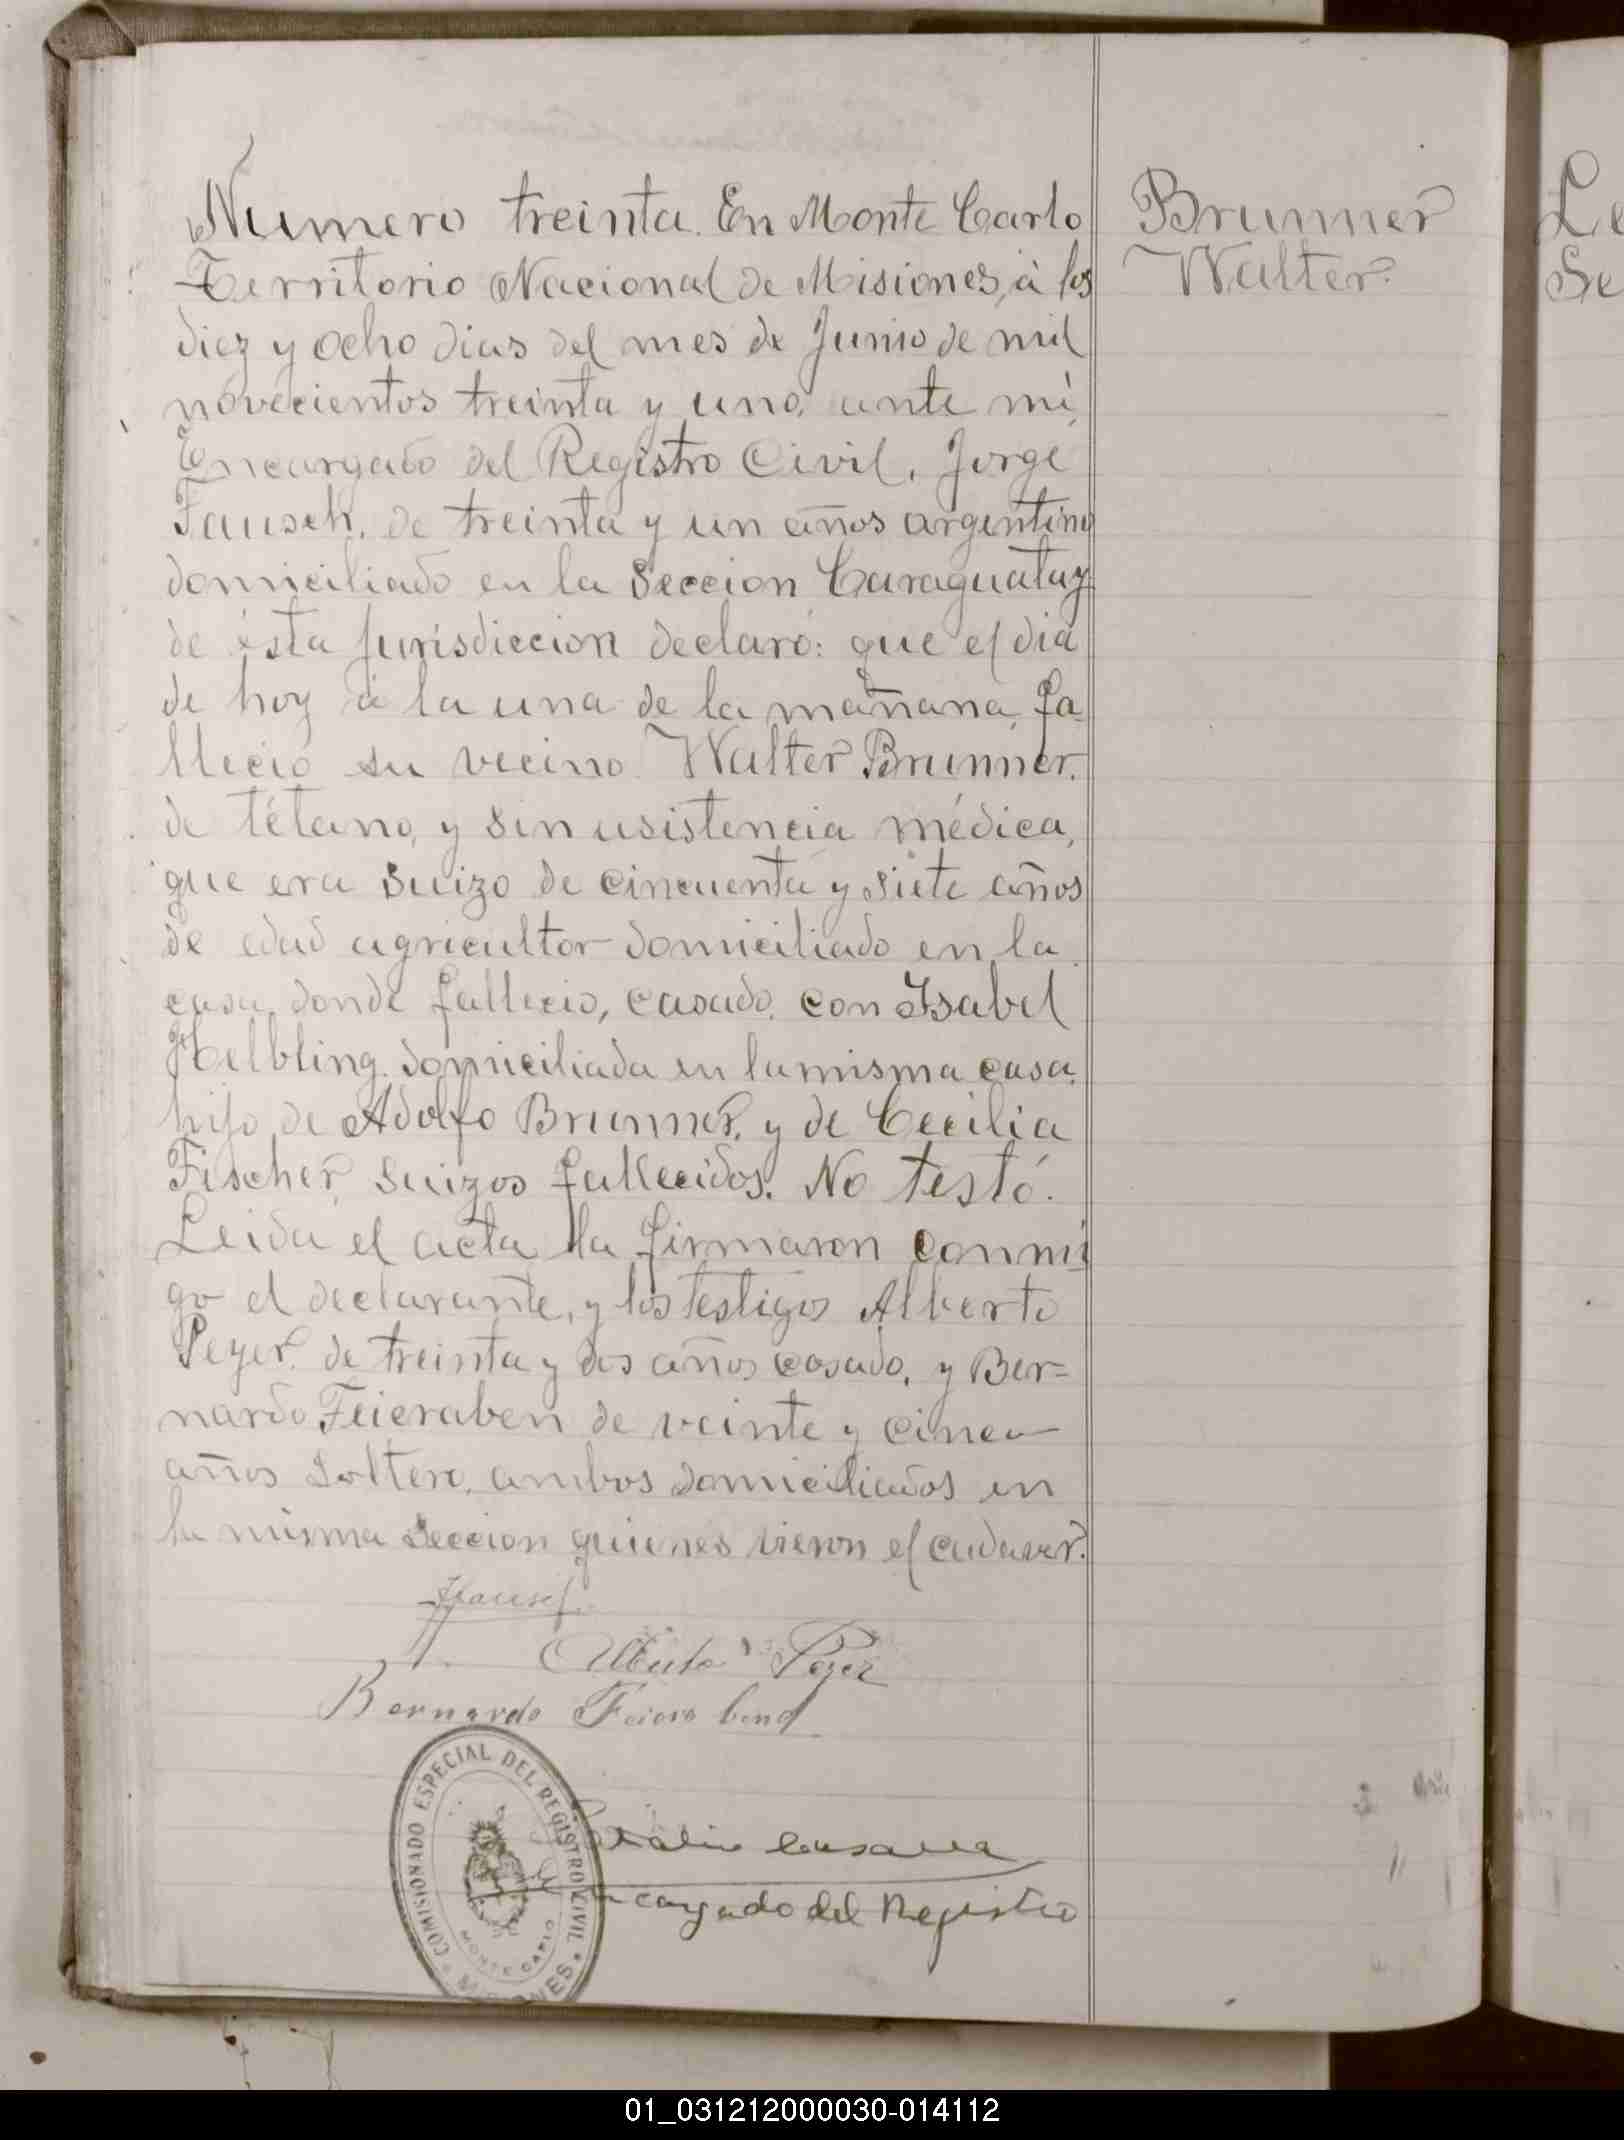 Numero treinta. En Monte Carlo
Territorio Nacional de Misiones, á los
diez y ocho dias del mes de Junio de mil
novecientos treinta y uno, ante mí,
Encargado del Registro Civil, Jorge
Fausch, de treinta y un años argentino
domiciliado en la Seccion Caraguatay
de ésta Jurisdiccion declaró: que el dia
de hoy á la una de la mañana, fa-
lleció su vecino Walter Brunner.
de tétano, y sin asistencia médica,
que era suizo de cincuenta y siete años
de edad agricultor domiciliado en la
casa donde falleció, casado, con Isabel
Helbling domiciliada en la misma casa,
hijo de Adolfo Brunner, y de Cecilia
Fischer, suizos fallecidos. No testó.
Leida el acta la firmaron conmi
go el declarante, y los testigos Alberto
Peyer. de treinta y dos años casado, y Ber=
nardo Feieraben de veinte y cinco
años soltero, ambos domiciliados en
la misma seccion quienes vieron el cadaver.
Brunner
Walter.
Alberto Peyer
Bernardo Feierabend
Encargado del Registro
COMISIONADO ESPECIAL DEL REGISTRO CIVIL
MONTE CARLO
MISIONES
Le
Se
01_031212000030-014112